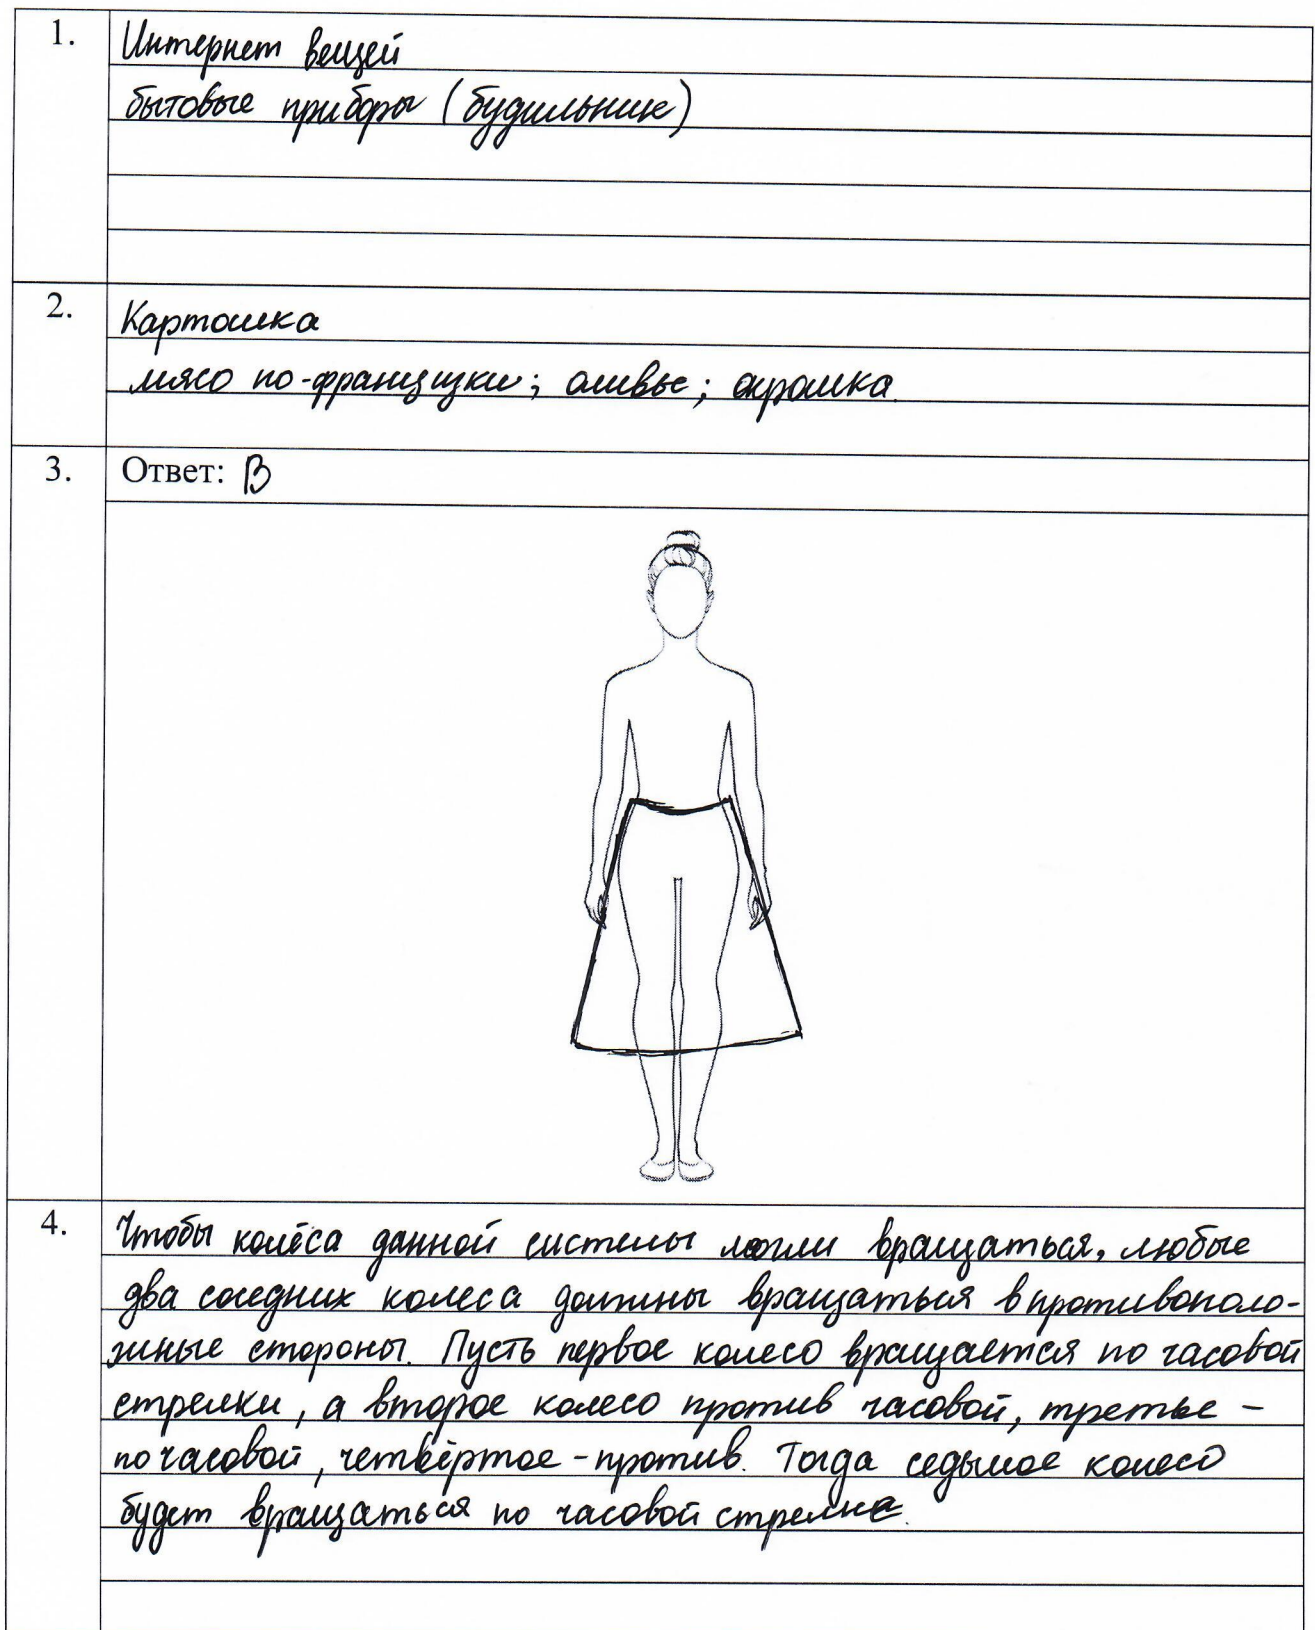 1.
Интернет вещей
бытовые приборы (будильник)
2.
Картошка
мясо по-французски; оливье; окрошка.
3.
Ответ: В
4.
Чтобы колёса данной системы могли вращаться, любые
два соседних колеса должны вращаться в противополо-
жные стороны. Пусть первое колесо вращается по часовой
стрелки, а второе колесо против часовой, третье –
по часовой, четвёртое – против. Тогда седьмое колесо
будет вращаться по часовой стрелке.